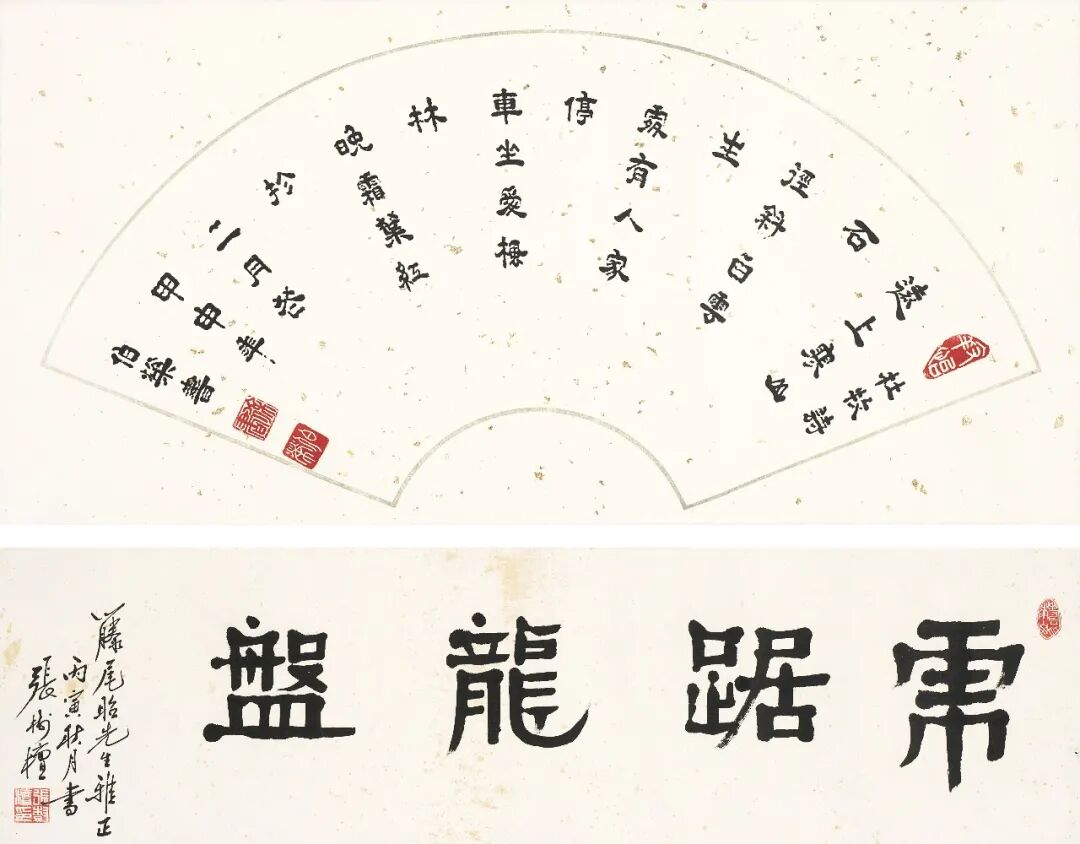 杜牧詩
遠上寒山
石
徑斜白雲
生
處有人家
停
車坐愛楓
林
晚霜葉紅
於
二月花
甲申年
伯梁書
虎踞龍盤
藤尾昭先生雅正
丙寅秋月書
張樹檀